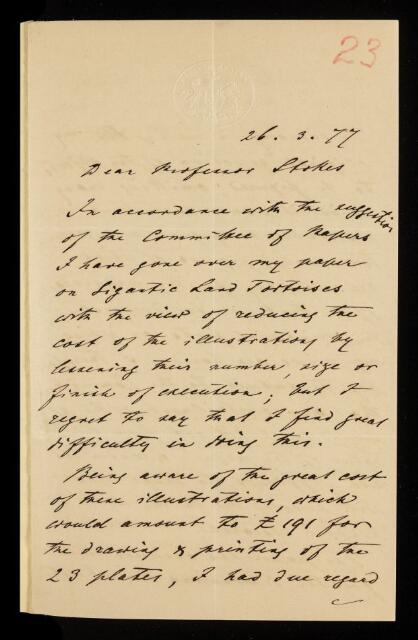 23
26. 3. 77
Dear Professor Stokes
In accordance with the suggestion
of the Committee of Papers
I have gone over my paper
on Gigantic Land Tortoises
with the view of reducing the
cost of the illustrations by
lessening their number, size or
finish of execution; but I
regret to say that I find great
difficulty in doing this.
Being aware of the great cost
of these illustrations, which
would amount to £191 for
the drawing & printing of the
23 plates, I had due regard